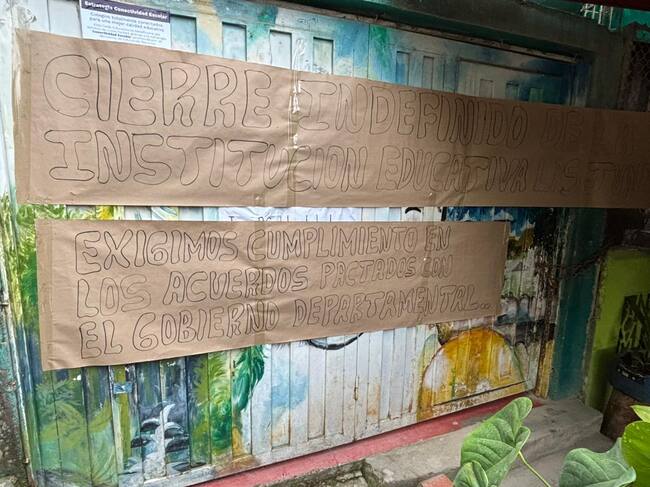 Estrategia Conectividad Escolar
CIERRE INDEFINIDO DE
INSTITUCION EDUCATIVA LAS
EXIGIMOS CUMPLIMIENTO EN
LOS ACUERDOS PACTADOS CON
EL GOBIERNO DEPARTAMENTAL...